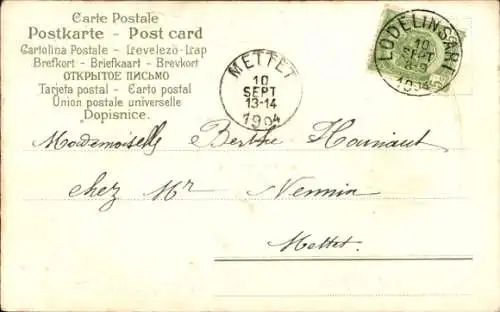 Carte Postale
Postkarte - Post card
Cartolina Postale - Levelezö-Lap
Brefkort - Briefkaart - Brevkort
ОТКРЫТОЕ ПИСЬМО
Tarjeta postal - Carto postal
Union postale universelle
Dopisnice.
METTET
10
SEPT
13-14
1904
LODELINSART
10
SEPT
1904
Mademoiselle Berthe Hainaut
chez Mr
Mettet.